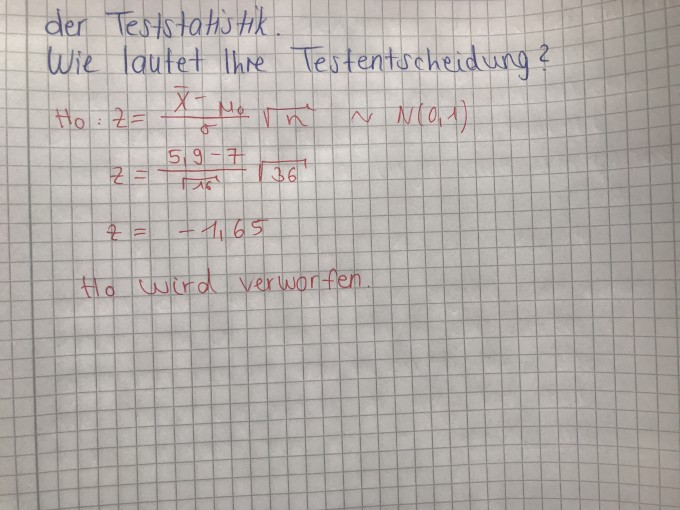 der Teststatistik.
Wie lautet Ihre Testentscheidung?
H0 : Z = (X̄ - μ0)/σ √n ~ N(0,1)
z = (5,9 - 7)/√16 √36
z = -1,65
H0 wird verworfen.